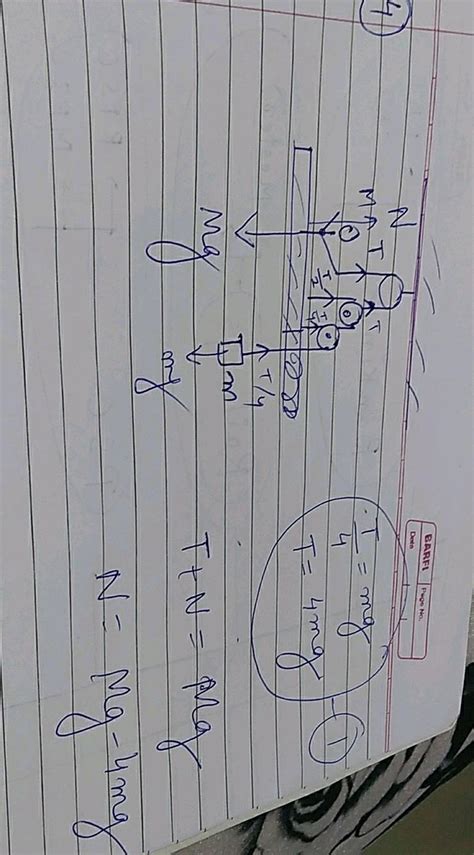 4
BARFI
Date
Page No.
N
T
M
T
T/2
T/4
T/4
m
Mg
mg
T/4 = mg
T = 4mg
1
T + N = Mg
N = Mg - 4mg